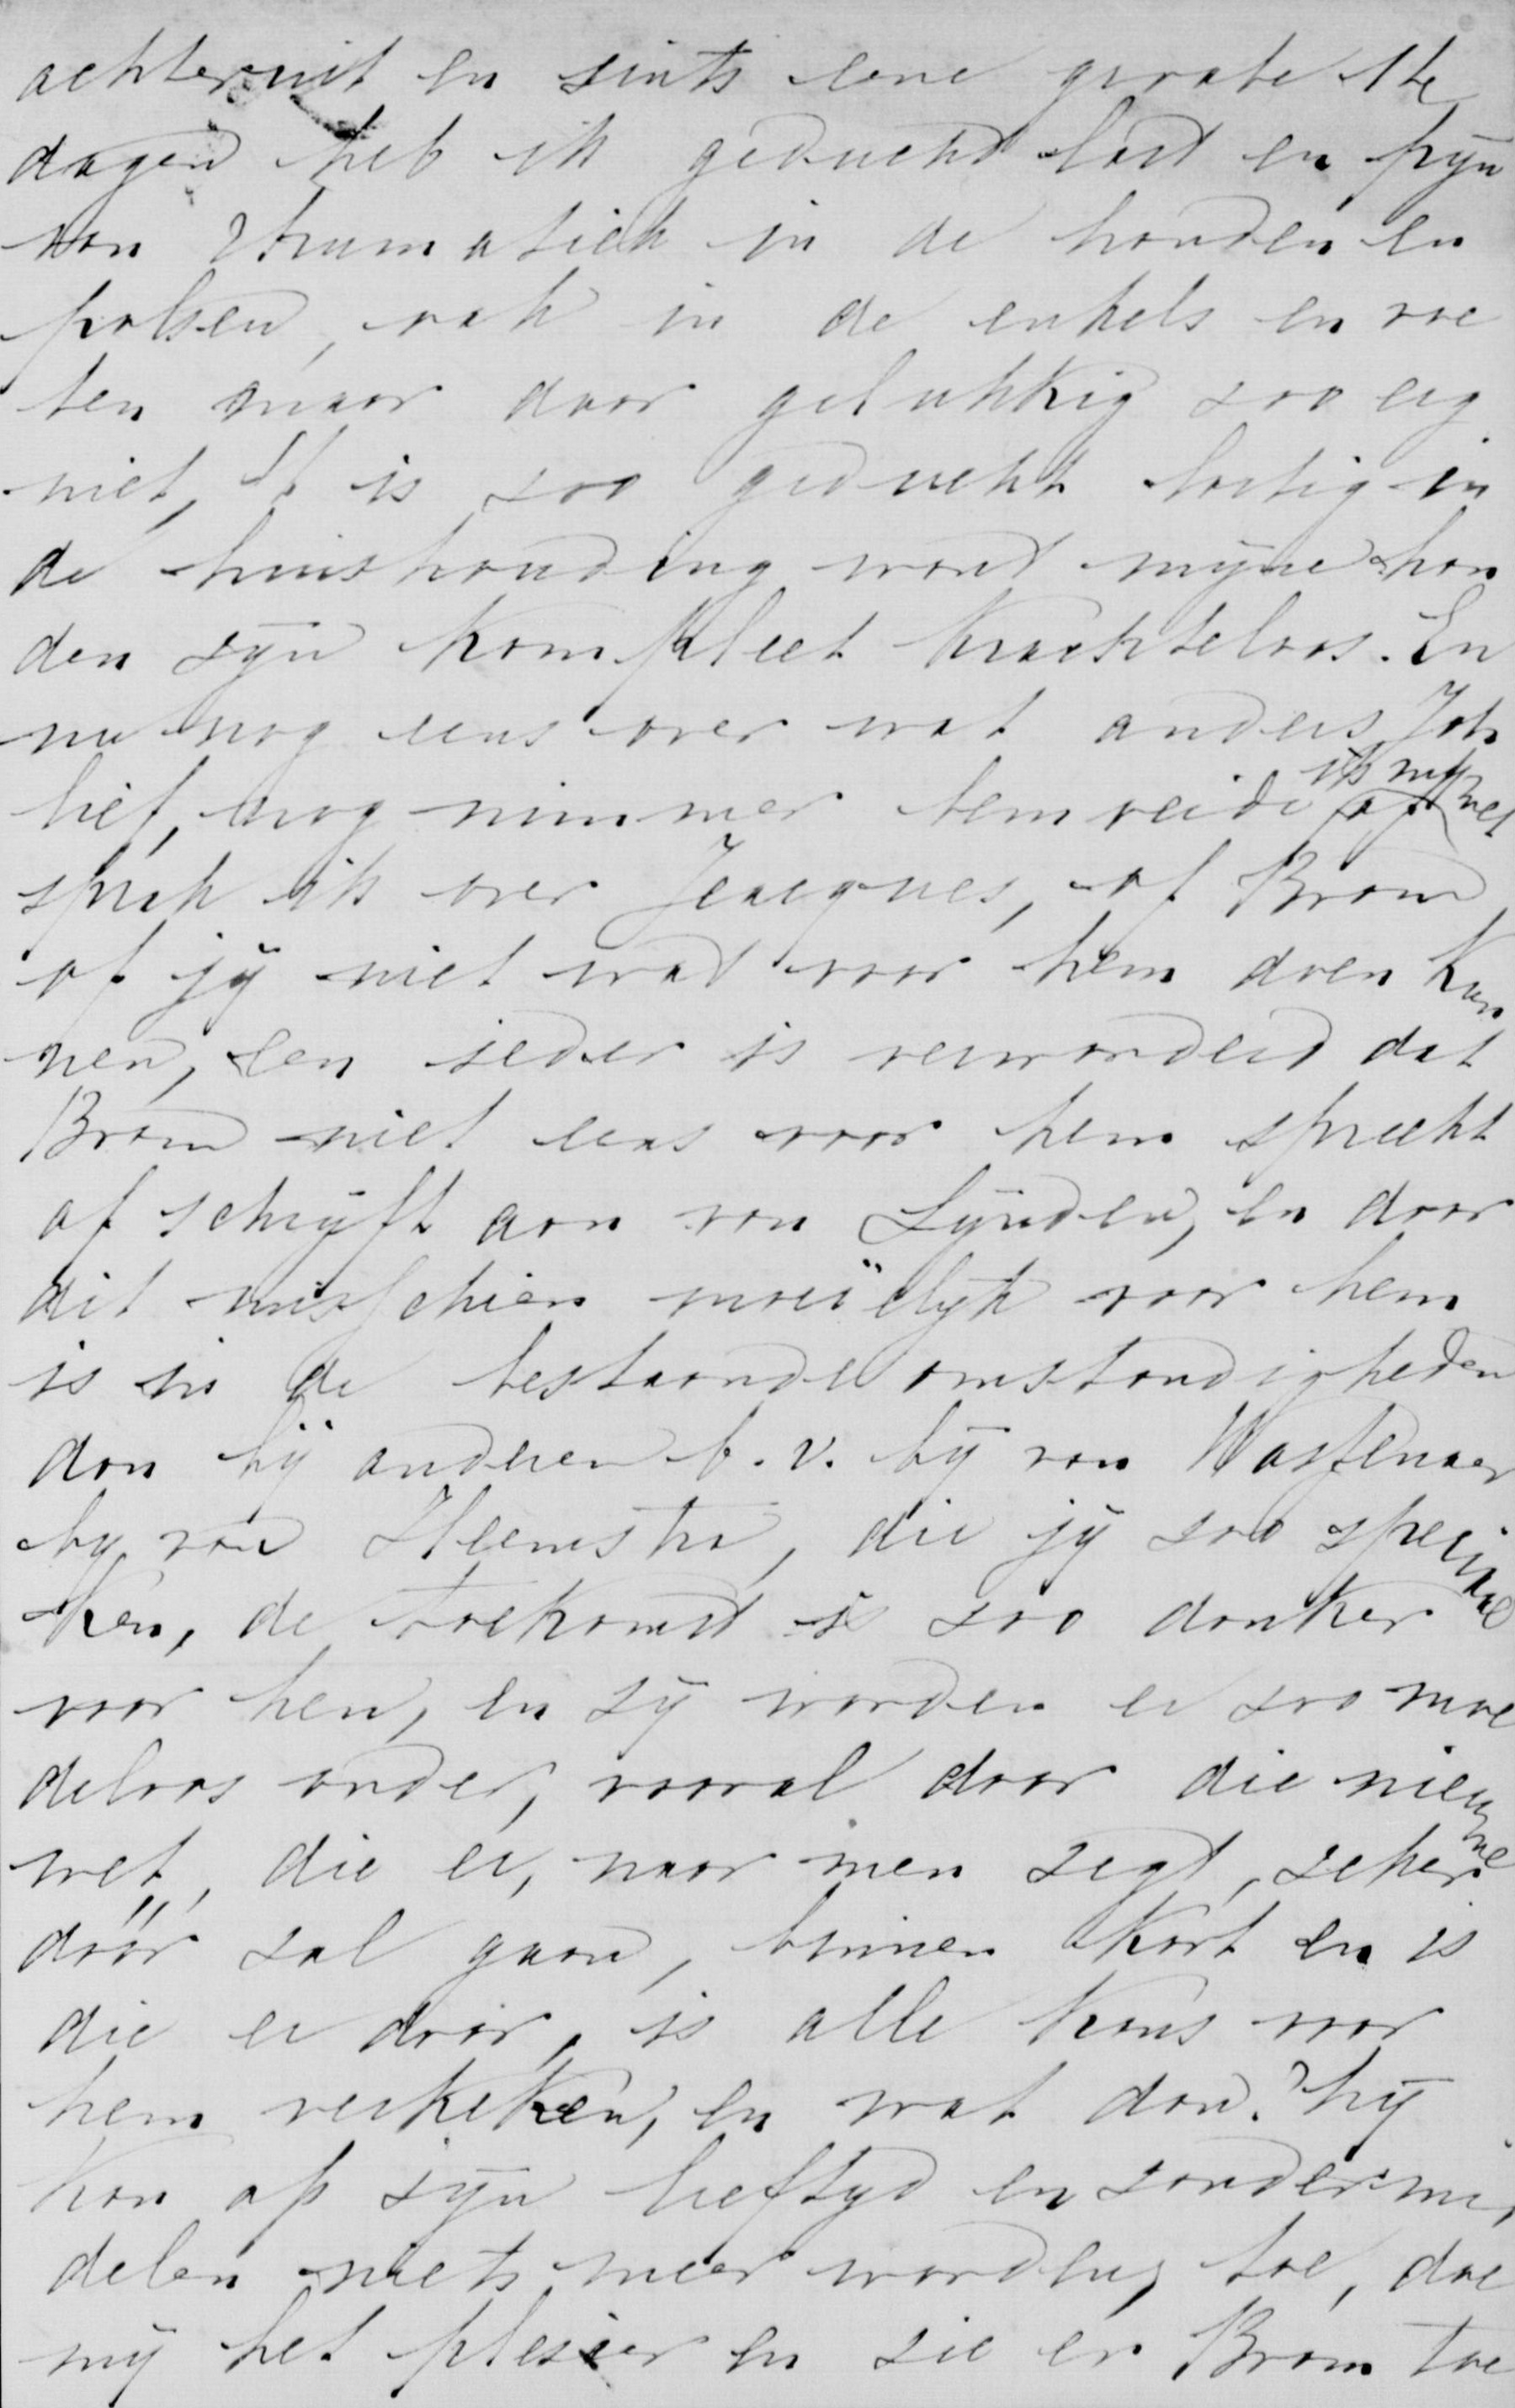 achteruit en sints eene groote 14
dagen heb ik geducht last en pijn
van rhumatiek in de handen en
polsen, ook in de enkels en voe
ten maar daar gelukkig zoo erg
niet, 't is zoo geducht lastig in
de huishouding want mijne han
den zijn kompleet krachteloos. En
nu nog eens over wat anders, Joh
lief, nog nimmer
sprak ik over Jeacques, of Brom
of jij niet wat voor hem doen kun
nen, een ieder is verwonderd dat
Brom niet eens voor hem spreekt
of schrijft aan van Lijnden, en daar
dit misschien moeiëlijk voor hem
is in de bestaande omstandigheden
dan bij anderen b.v. bij van Wassenaer
bij van Heemstra, die jij zoo speciaal
ken, de toekomst is zoo donker
voor hen, en zij worden er zoo moe
deloos onder, vooral door die nieuwe
wet, die er, naar men zegt, zeker
dóór zal gaan, binnen kort en is
die er door, is alle kans voor
hem verkeken, en wat dan? hij
kan op zijn leeftijd en zonder mid
delen niets meer worden, toe, doe
mij het plesier en zie er Brom toe